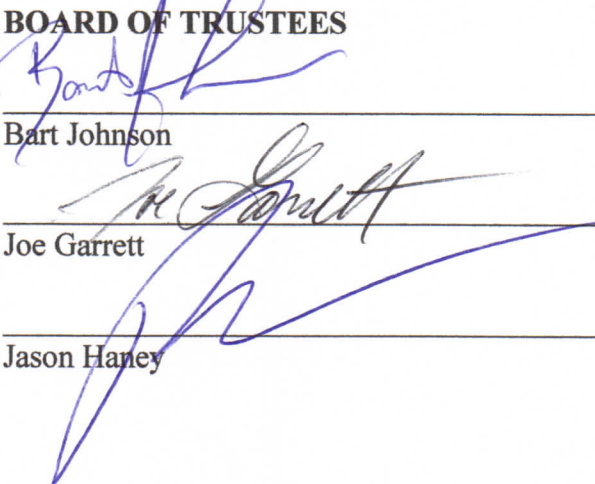 BOARD OF TRUSTEES
Bart Johnson
Joe Garrett
Joe Garrett
Jason Haney